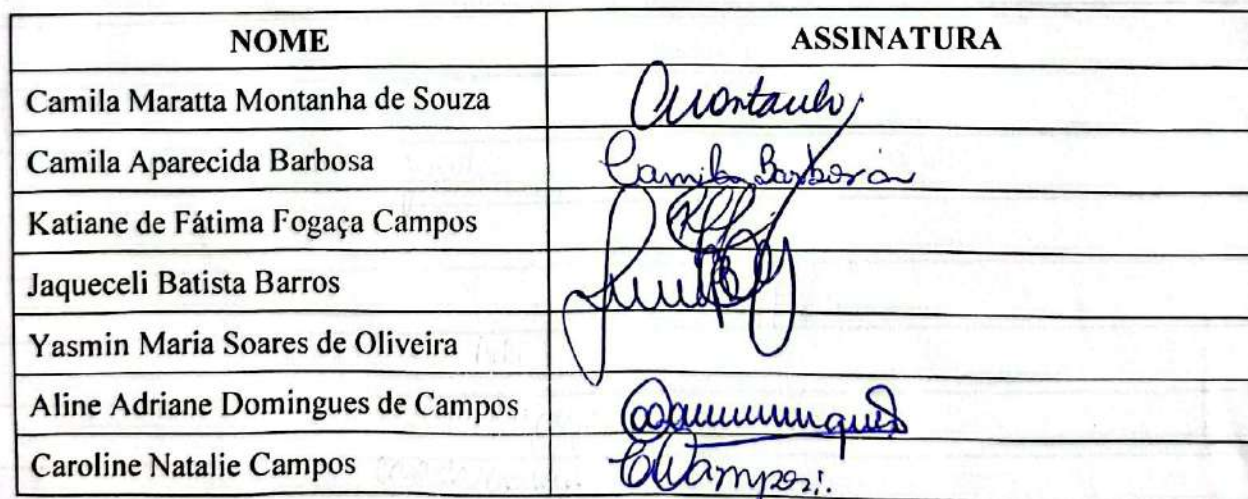 NOME ASSINATURA
Camila Maratta Montanha de Souza
Camila Aparecida Barbosa Camila Barbosa
Katiane de Fátima Fogaça Campos
Jaqueceli Batista Barros
Yasmin Maria Soares de Oliveira
Aline Adriane Domingues de Campos
Caroline Natalie Campos